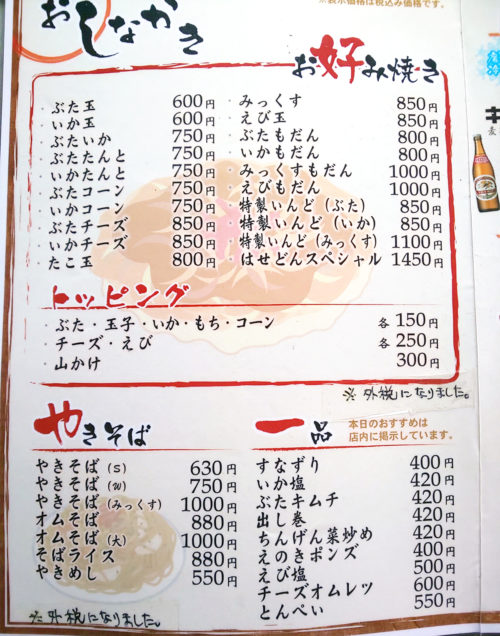 ※表示価格は税込み価格です。
おしながき
お好み焼き
・ぶた玉 600円
・いか玉 600円
・ぶたいか 750円
・ぶたたんと 750円
・いかたんと 750円
・ぶたコーン 750円
・いかコーン 750円
・ぶたチーズ 850円
・いかチーズ 850円
・たこ玉 800円
・みっくす 850円
・えび玉 850円
・ぶたもだん 800円
・いかもだん 800円
・みっくすもだん 1000円
・えびもだん 1000円
・特製いんど（ぶた） 850円
・特製いんど（いか） 850円
・特製いんど（みっくす） 1100円
・はせどんスペシャル 1450円
トッピング
・ぶた・玉子・いか・もち・コーン 各150円
・チーズ・えび 各250円
・山かけ 300円
※外税になりました。
やきそば
やきそば（S） 630円
やきそば（W） 750円
やきそば（みっくす） 1000円
オムそば 880円
オムそば（大） 1000円
そばライス 880円
やきめし 550円
※外税になりました。
一品
本日のおすすめは
店内に掲示しています。
すなずり 400円
いか塩 420円
ぶたキムチ 420円
出し巻 420円
ちんげん菜炒め 420円
えのきポンズ 400円
えび塩 500円
チーズオムレツ 600円
とんぺい 550円